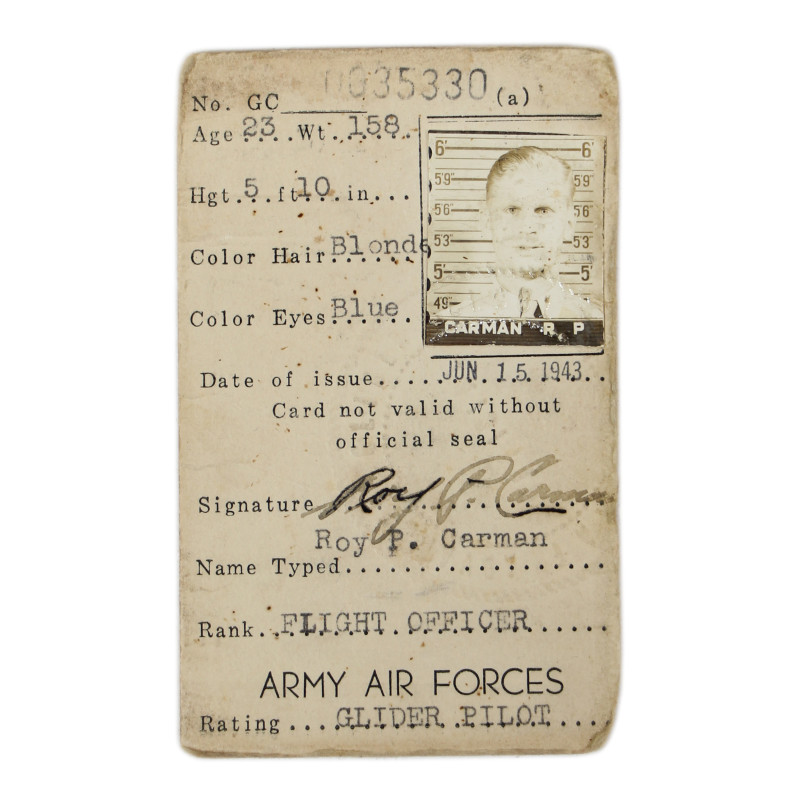 No. GC 0G35330 (a)
Age 23 .. Wt. 158
Hgt. 5 . ft. 10 . in...
Color Hair Blonde
Color Eyes Blue
6' 6'
59" 59"
56" 56"
53" 53"
5' 5'
49"
CARMAN R P
Date of issue..... JUN. 15. 1943..
Card not valid without
official seal
Signature Roy P. Carman
Roy P. Carman
Name Typed...................
Rank.. FLIGHT OFFICER ......
ARMY AIR FORCES
Rating ... GLIDER PILOT ....